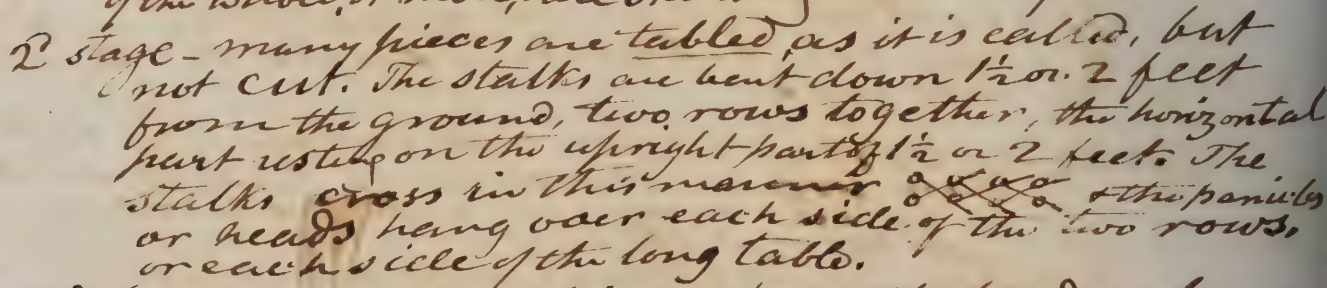 2d stage - many pieces are tabled, as it is called, but
not cut. The stalks are bent down 1½ or 2 feet
from the ground, two rows together, the horizontal
part resting on the upright part of 1½ or 2 feet. The
stalks cross in this manner & the panicles
or heads hang over each side of the two rows.
or each side of the long table.